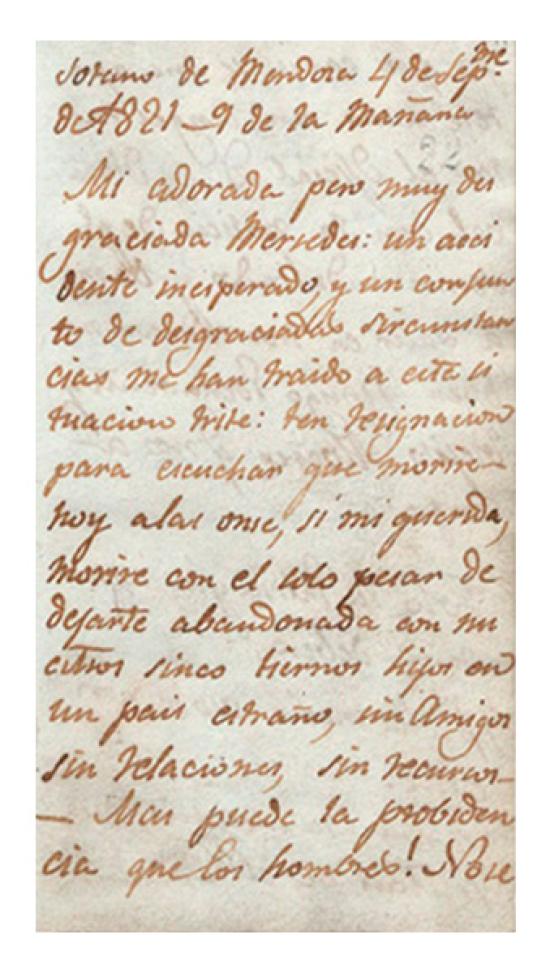 Sotano de Mendosa 4 de Sep.me
de 1821 – 9 de la Mañana
22
Mi adorada pero muy des
graciada Mersedes: un acci
dente inesperado, y un conjun
to de desgraciadas sircunstan
cias me han traido a esta si
tuacion triste: ten resignacion
para escuchar que morire
hoy a las onse, si mi querida,
morire con el solo pesar de
dejarte abandonada con nu
estros sinco tiernos hijos en
un pais estraño, sin Amigos
sin relaciones, sin recursos–
– Mas puede la probiden
cia que los hombres! No se